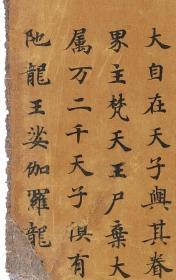 大自在天子與其眷
界主梵天王尸棄大
属万二千天子俱有
陁龍王娑伽羅龍